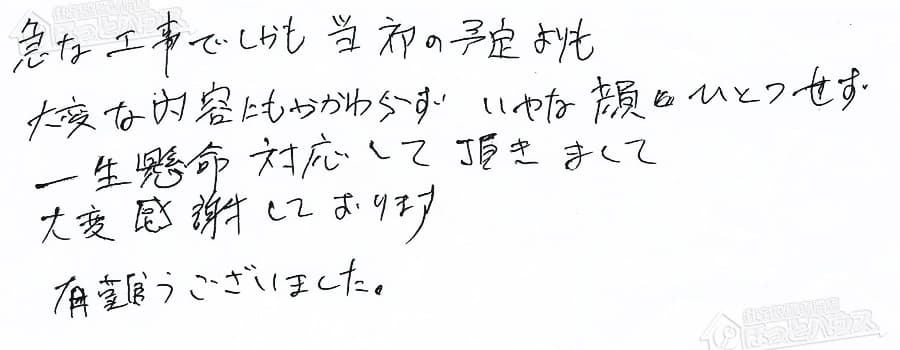 急な工事でしかも当初の予定よりも
大変な内容にもかかわらず いやな顔ひとつせず
一生懸命対応して頂きまして
大変感謝しております
有難うございました。
ほっとハウス